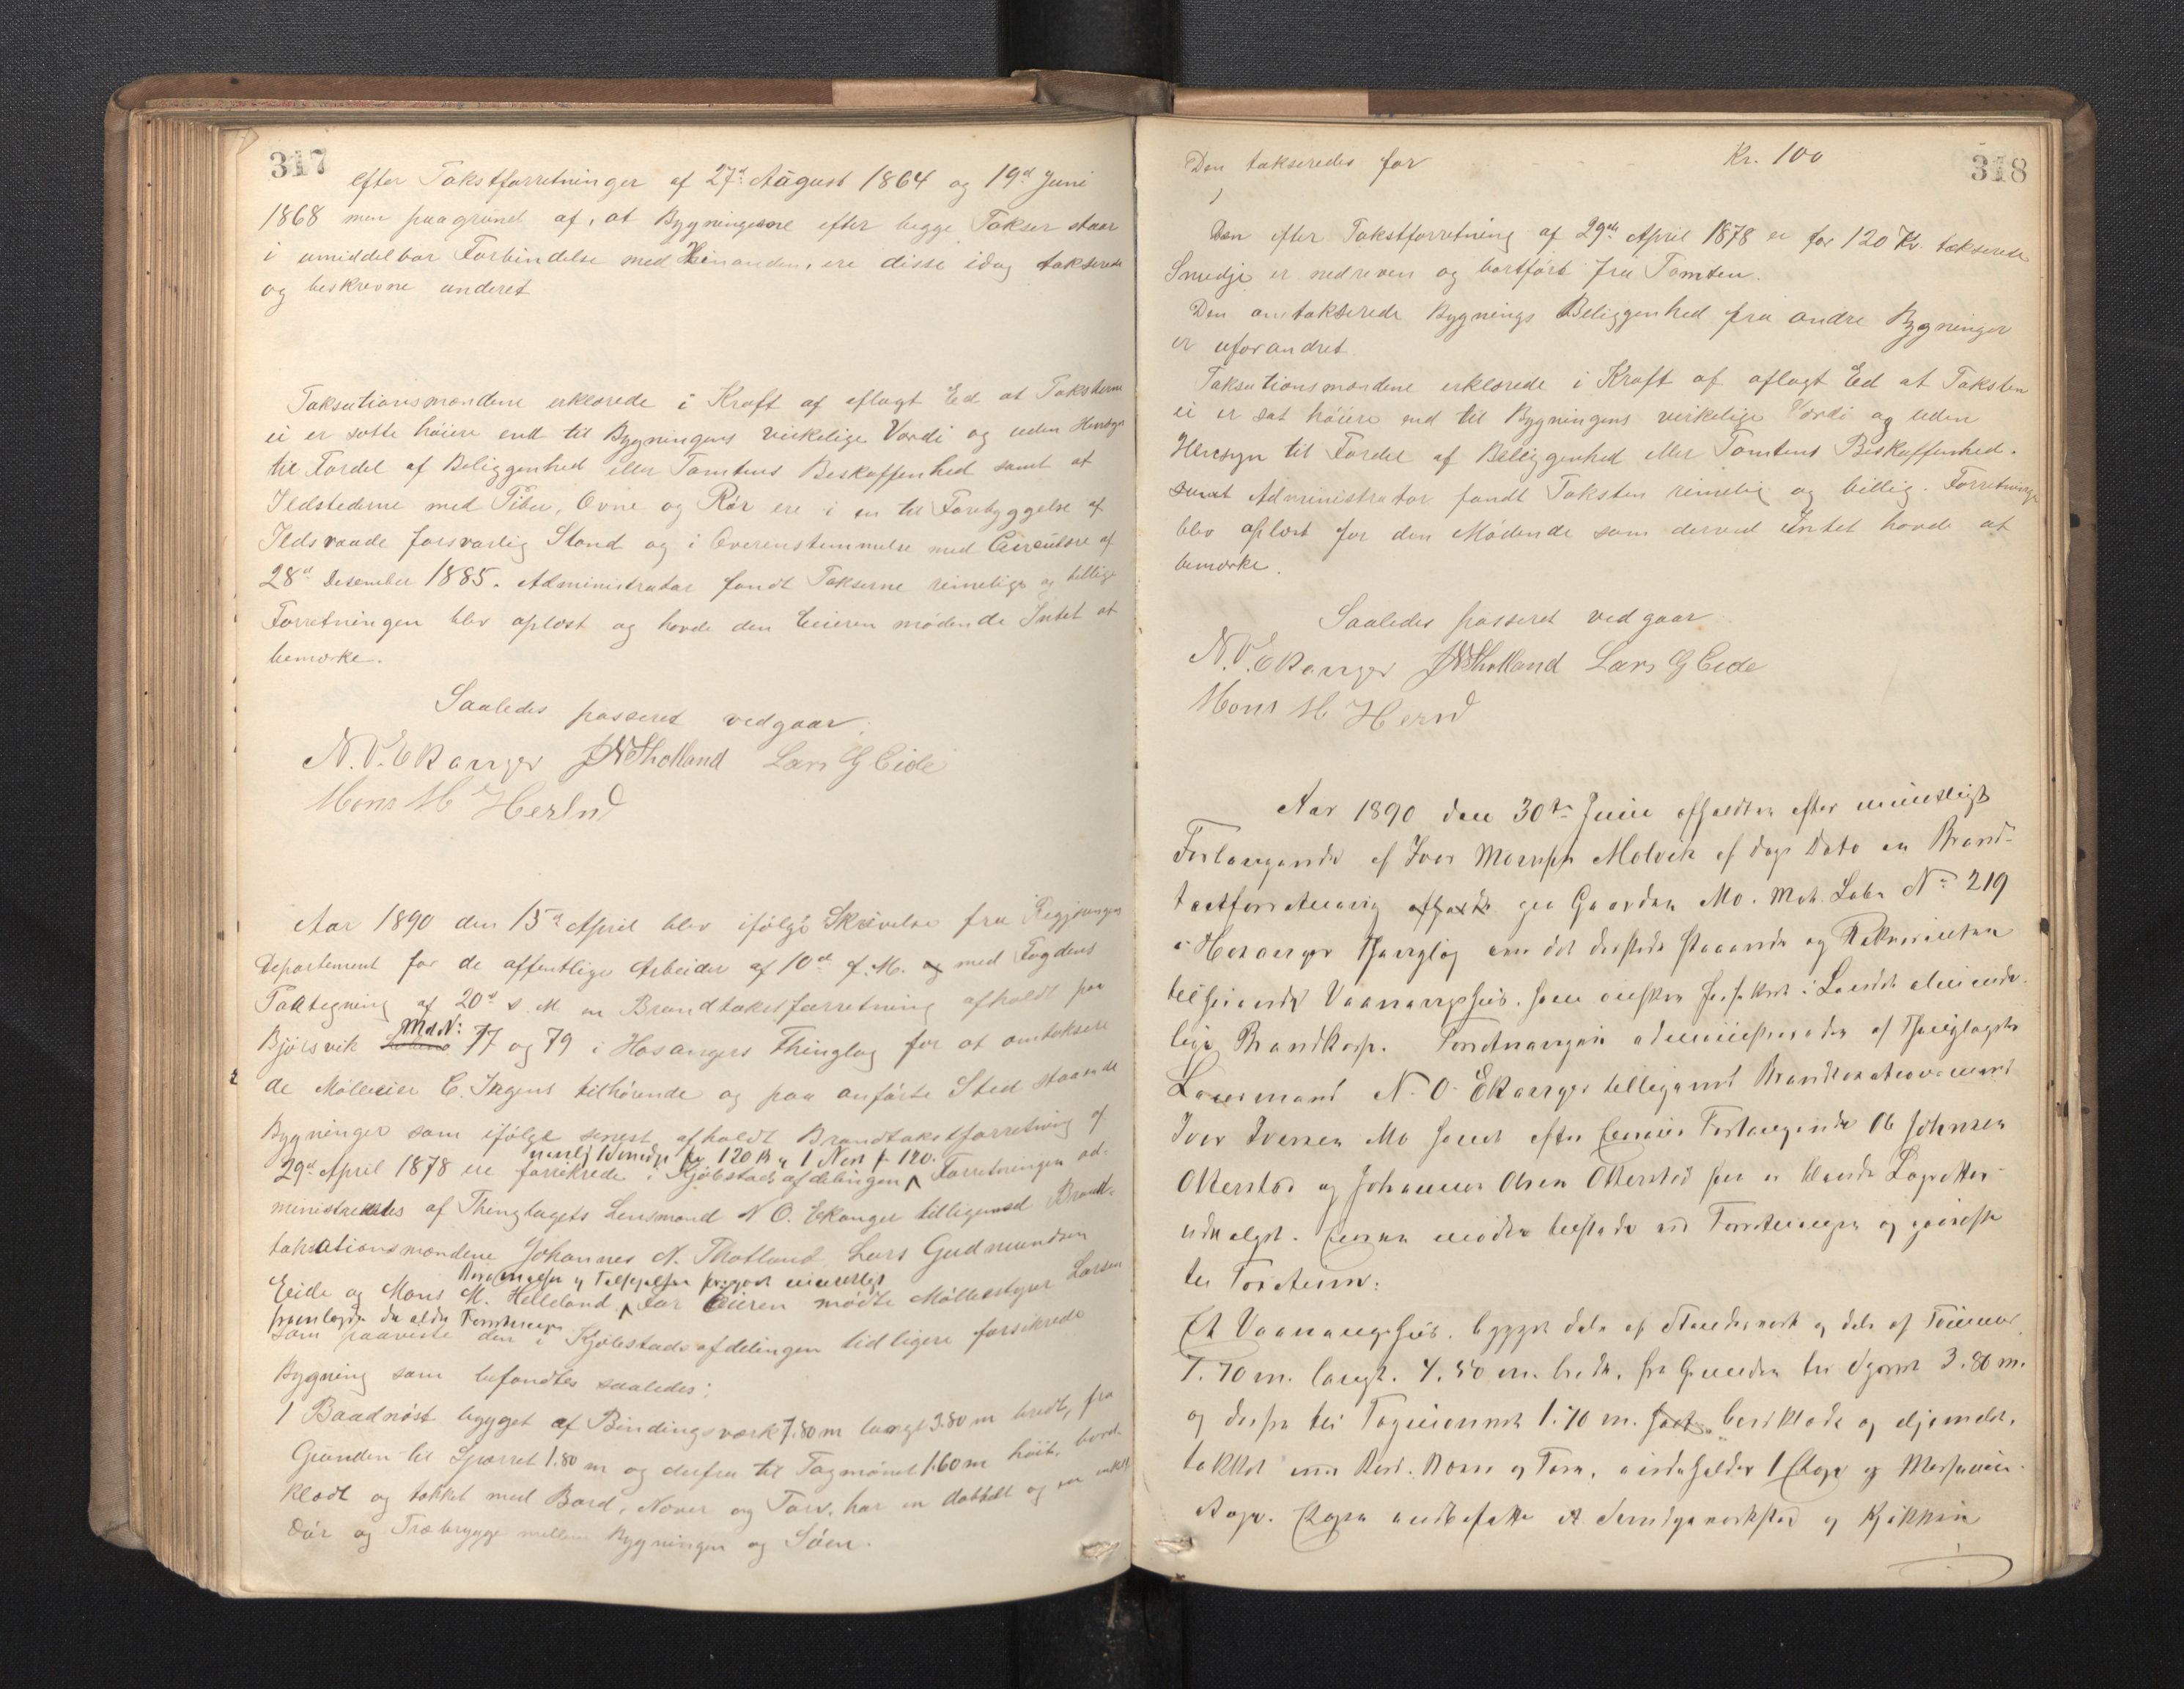 317
efter Takstforretninger af 27d August 1864 og 19d Juni
1868 men paagrund af, at Bygningerne efter begge Takser staar
i umiddelbar Forbindelse med Hinanden, ere disse idag takserede
og beskrevne underet
Taksationsmændene erklærede i Kraft af aflagt Ed at Taksterne
ei er satte höiere end til Bygningens virkelige Værdi og uden Hensyn
til Fordel af Beliggenhed eller Tomtens Beskaffenhed samt at
Ildstederne med Piber, Ovne og Rör ere i en til Forebyggelse af
Ildsvaade forsvarlig Stand og i Overenstemmelse med Circulære af
28d Desember 1885. Administrator fandt Takserne rimelige og billige
Forretningen blev oplæst og havde den Eieren mödende Intet at
bemærke.
Saaledes passeret vedgaar:
N. O. Ekanger JNThotland Lars G Eide
Mons M Herlnd
Aar 1890 den 15d April blev ifölge Skrivelse fra Regjeringen
Departement for de offentlige Arbeider af 10d f. M. og med Fogdens
Paategning af 20d s. M. en Brandtakstforretning afholdt paa
Bjørsvik MdN: 77 og 79 i Hosangers Thinglag for at omtaksere
de Mölleeier C. Irgens tilhörende og paa anförte Sted staaende
Bygninger som ifölge senest afholdt Brandtakstforretning af
nemlig 1 Smedje for 120 Kr og 1 Nøst for 120.
29d April 1878 ere forsikrede i Kjöbstadsafdelingen Forretningen ad-
ministreredes af Thinglagets Lensmand N O. Ekanger tilligemed Brand-
taksationsmændene Johannes N. Thotland, Lars Gudmundsen
Eide og Mons M. Helleland. For Eieren mödte Möllebestyrer Larsen
fremlagde den ældre Forretning
som paaviste den i Kjöbstadsafdelingen tidligere forsikrede
Bygning som befandtes saaledes:
1 Baadnöst bygget af Bindingsværk 7.80 m langt 3.80 m bredt, fra
Grunden til Sparret 1.80 m og derfra til Tagmönet 1.60 m höit. bord-
klædt og tækket med Bord, Næver og Torv, har en dobbelt og en enkelt
Dör og Træbrygge mellem Bygningen og Söen.
318
Den takseredes for - - - Kr. 100
Den efter Takstforretning af 29de April 1878 er for 120 Kr. takserede
Smedje er nedreven og bortfört fra Tomten.
Den omtakserede Bygnings Beliggenhed fra andre Bygninger
er uforandret.
Taksationsmændene erklærede i Kraft af aflagt Ed at Taksten
ei er sat höiere end til Bygningens virkelige Værdi og uden
Hensyn til Fordel af Beliggenhed eller Tomtens Beskaffenhed.
samt Administrator fandt Taksten rimelig og billig. Forretningen
blev oplæst for den Mödende som derved Intet havde at
bemærke.
Saaledes passeret vedgaar:
N. O. Ekanger JNThotland Lars G Eide
Mons M Hernd
Aar 1890 den 30te Juni afholdtes efter mundtligt
Forlangende af Iver Monsen Molvik af dags Dato en Brand-
taxtforretning afholdt paa Gaarden Mo. Mat. Løbe No 219
i Hosanger Thinglag om det dersteds staaende og Rekvirenten
tilhørende Vaaningshus. som ønskes forsikret i Landets alminde-
lige Brandkasse. Forretningen administreredes af Thinglagets
Lensmand N. O. Ekanger tilligemed Brandtaxationsmænd
Iver Iversen Mo samt efter Eierens Forlangende Ob Johnsen
Otterstad og Johannes Olsen Otterstad som er blandt Lagrettet
udvalgt. Eieren mødte tilstede ved Forretningen og paaviste
til Taxation:
Et Vaaningshus. bygget dels af Stenderværk og dels af Tømmer,
7.70 m. langt. 4.50 m. bredt, fra Grunden til Sparret 3.80 m.
og derfra til Tagmønnet 1.70 m. høit. bordklædt og oljemalet,
tækket med Bord. Næver og Torv, indeholder 1 Etage og Messanin-
etage. Etagen indbefatter et Snedgerværksted og Kjøkken